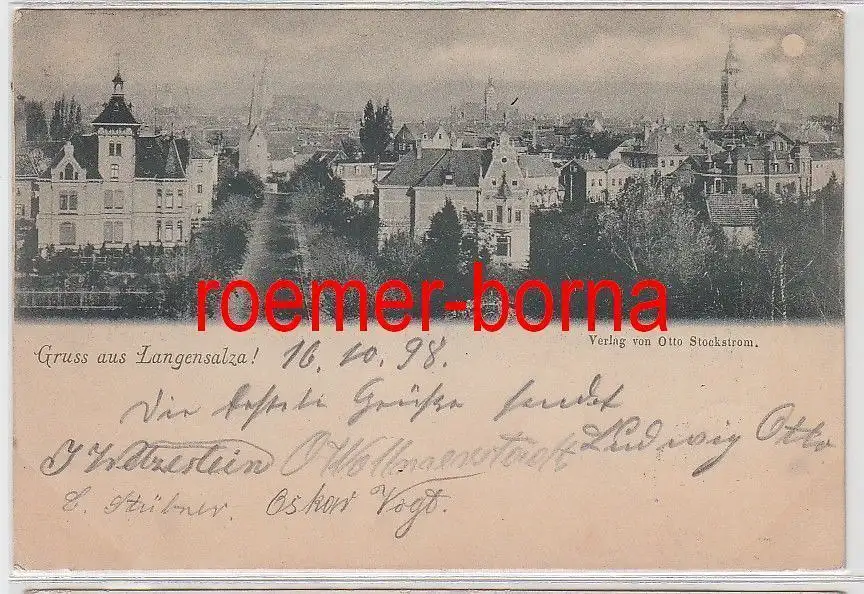 roemer-borna
Verlag von Otto Stockstrom.
Gruss aus Langensalza! 16. 10. 98.
Die besten Grüße sendet
Ludwig Otto
J Wetzestein
C. Stübner. Oskar Vogt.